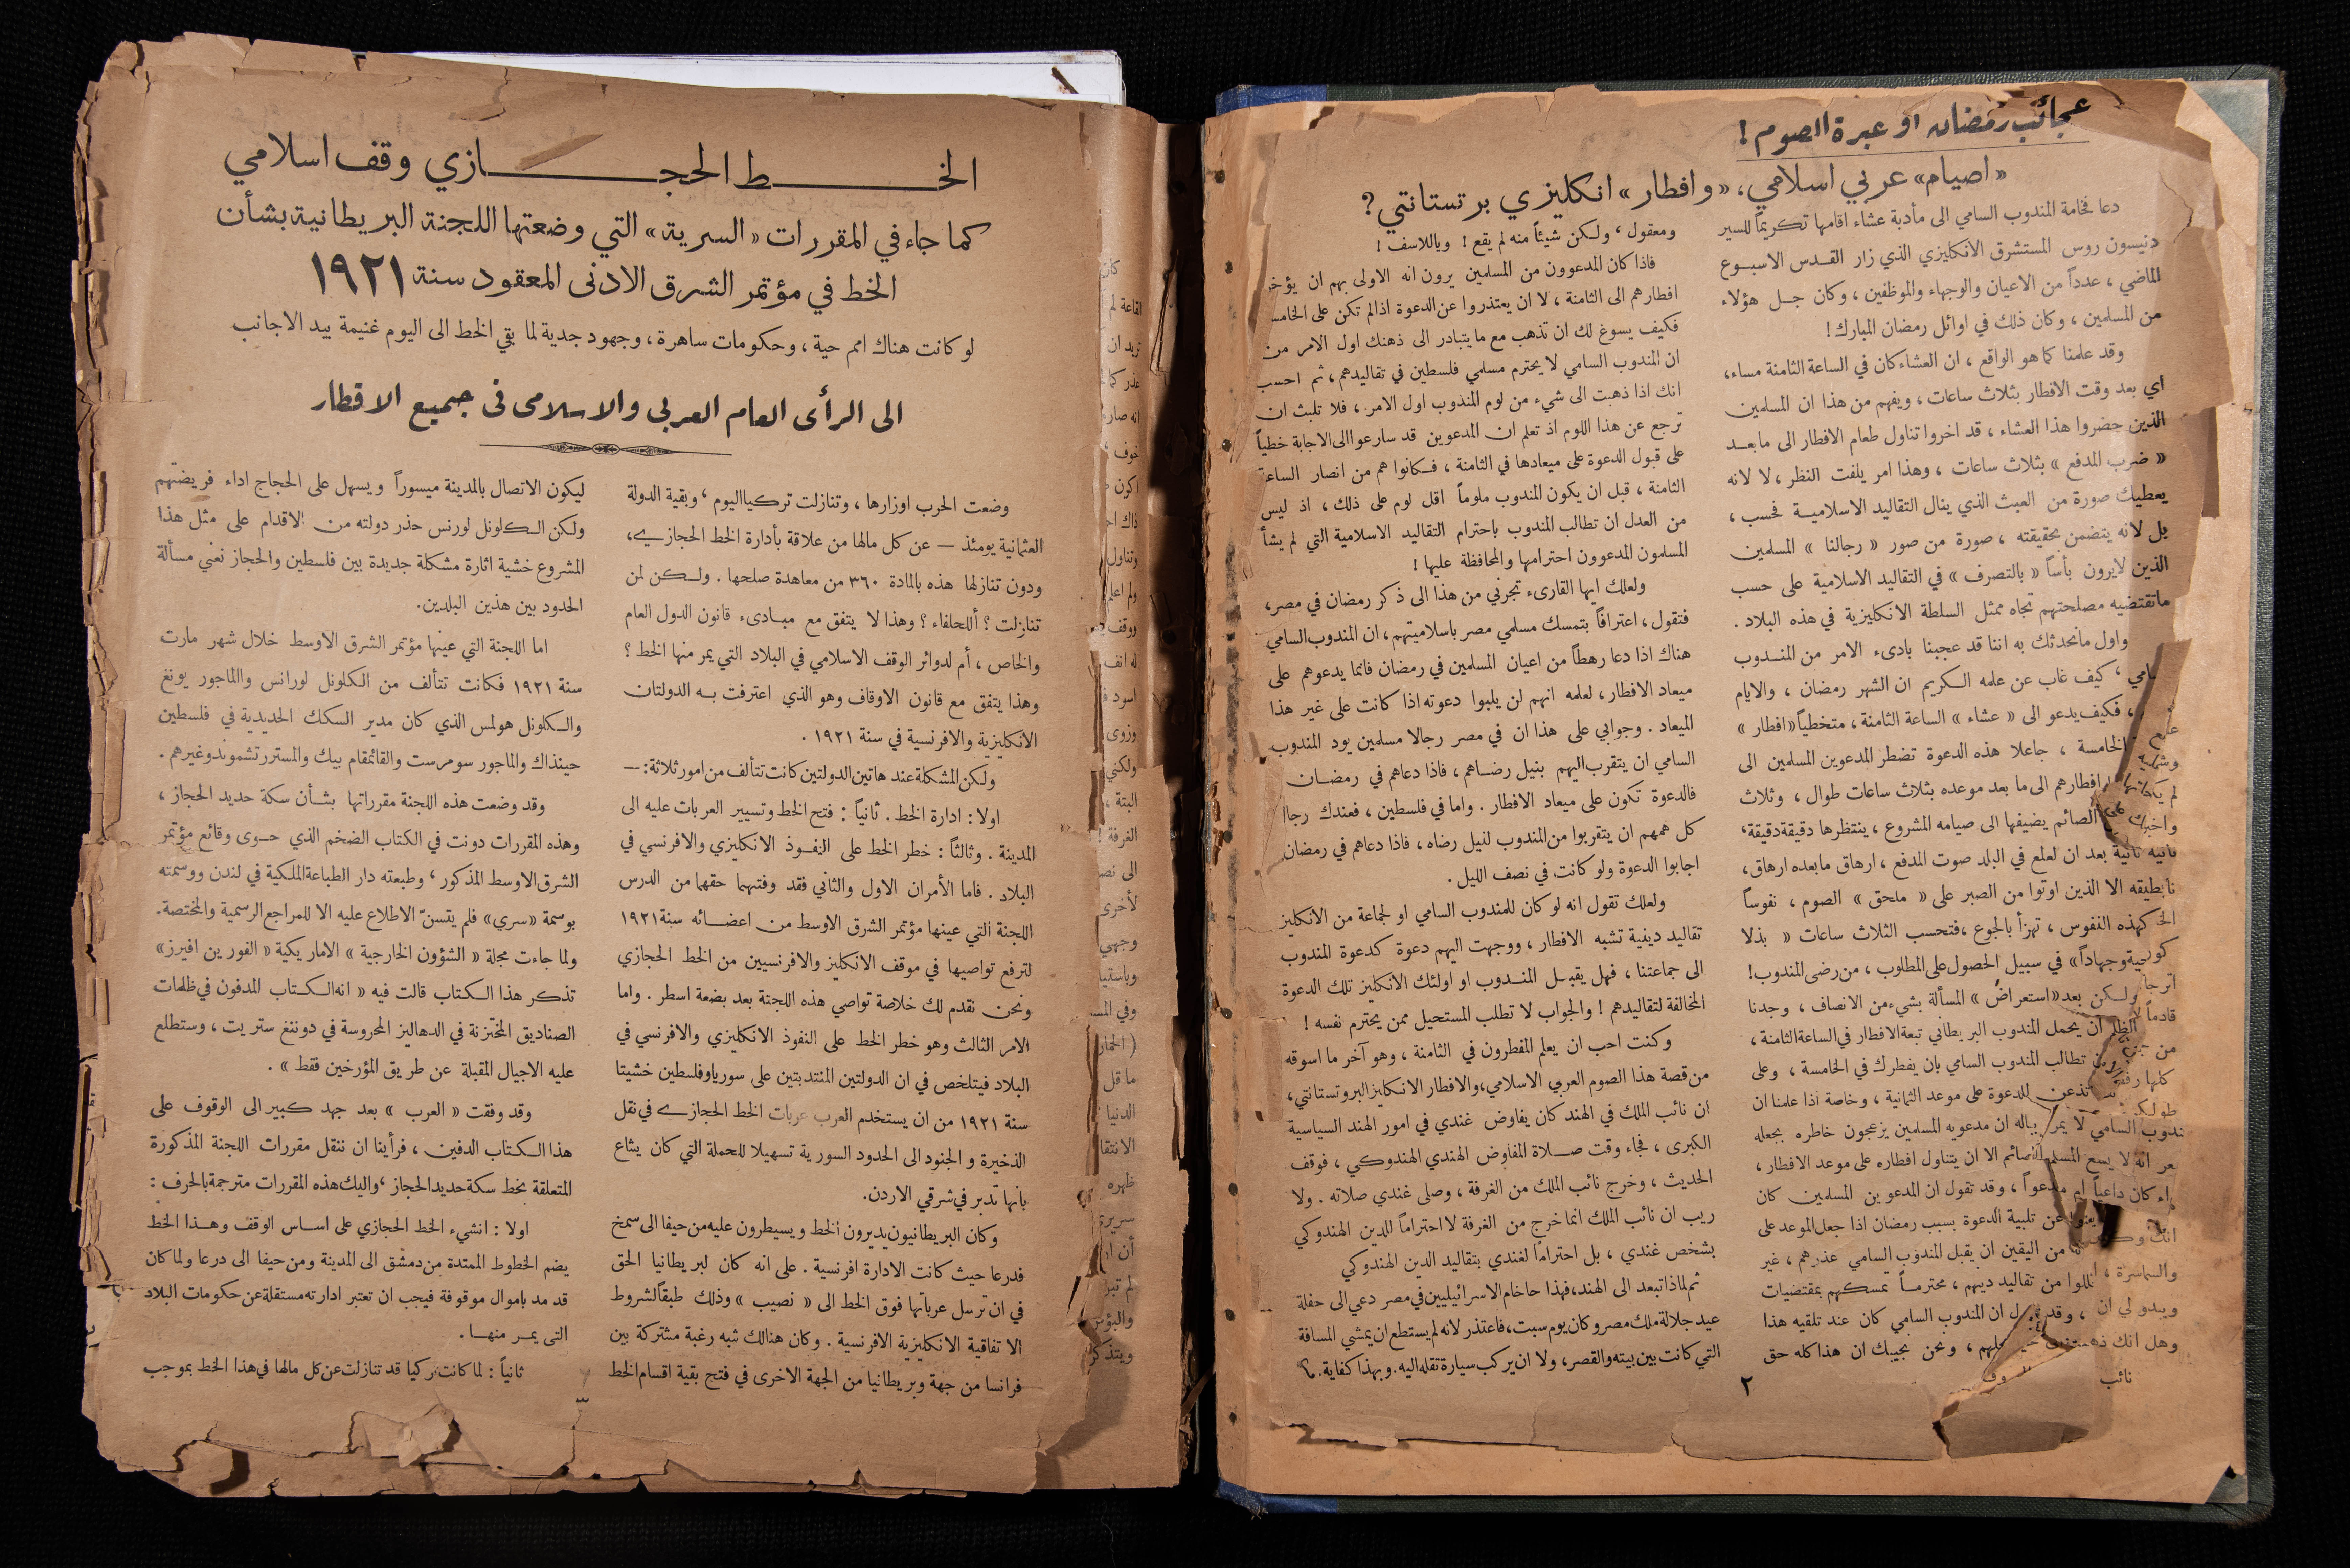 عجائب رمضان او عبرة الصوم !
«اصيام» عربي اسلامي، «وافطار» انكليزي برتستانتي؟
دعا فخامة المندوب السامي الى مأدبة عشاء اقامها تكريماً للسير
دنيسون روس المستشرق الانكليزي الذي زار القدس الاسبوع
الماضي ، عدداً من الاعيان والوجهاء والموظفين ، وكان جل هؤلاء
من المسلمين ، وكان ذلك في اوائل رمضان المبارك !
وقد علمنا كما هو الواقع ، ان العشاء كان في الساعة الثامنة مساء،
اي بعد وقت الافطار بثلاث ساعات ، ويفهم من هذا ان المسلمين
الذين حضروا هذا العشاء ، قد اخروا تناول طعام الافطار الى ما بعد
« ضرب المدفع » بثلاث ساعات ، وهذا امر يلفت النظر ، لا لانه
يعطيك صورة من العبث الذي ينال التقاليد الاسلامية فحسب ،
بل لانه يتضمن بحقيقته ، صورة من صور « رجالنا » المسلمين
الذين لايرون بأساً « بالتصرف » في التقاليد الاسلامية على حسب
ماتقتضيه مصلحتهم تجاه ممثل السلطة الانكليزية في هذه البلاد .
واول مانحدثك به اننا قد عجبنا بادىء الامر من المندوب
، كيف غاب عن علمه الكريم ان الشهر رمضان ، والايام
، فكيف يدعو الى « عشاء » الساعة الثامنة ، متخطياً «افطار»
الخامسة ، جاعلا هذه الدعوة تضطر المدعوين المسلمين الى
افطارهم الى ما بعد موعده بثلاث ساعات طوال ، وثلاث
الصائم يضيفها الى صيامه المشروع ، ينتظرها دقيقة دقيقة،
ثانية ثانية بعد ان لعلع في البلد صوت المدفع ، ارهاق مابعده ارهاق،
الا الذين اوتوا من الصبر على « ملحق » الصوم ، نفوساً
كهذه النفوس ، تهزأ بالجوع ، فتحسب الثلاث ساعات « بذلا
وجهاداً » في سبيل الحصول على المطلوب ، من رضى المندوب !
ولكن بعد «استعراض» المسألة بشيء من الانصاف ، وجدنا
ان يحمل المندوب البريطاني تبعة الافطار في الساعة الثامنة ،
تطالب المندوب السامي بان يفطرك في الخامسة ، وعلى
للدعوة على موعد الثمانية ، وخاصة اذا علمنا ان
السامي لا يمر بباله ان مدعويه المسلمين يزعجون خاطره بجعله
انه لا يسع المسلم الصائم الا ان يتناول افطاره على موعد الافطار ،
كان داعياً ام مدعواً ، وقد تقول ان المدعوين المسلمين كان
عن تلبية الدعوة بسبب رمضان اذا جعل الموعد على
من اليقين ان يقبل المندوب السامي عذرهم ، غير
من تقاليد دينهم ، محترماً تمسكهم بمقتضيات
، وقد ان المندوب السامي كان عند تلقيه هذا
، ونحن نجيبك ان هذا كله حق
ومعقول ، ولكن شيئاً منه لم يقع ! وياللاسف !
فاذا كان المدعوون من المسلمين يرون انه الاولى بهم ان
افطارهم الى الثامنة ، لا ان يعتذروا عن الدعوة اذا لم تكن على
فكيف يسوغ لك ان تذهب مع ما يتبادر الى ذهنك اول الامر من
ان المندوب السامي لا يحترم مسلمي فلسطين في تقاليدهم ، ثم احسب
انك اذا ذهبت الى شيء من لوم المندوب اول الامر ، فلا تلبث ان
ترجع عن هذا اللوم اذ تعلم ان المدعوين قد سارعوا الى الاجابة خطياً
على قبول الدعوة على ميعادها في الثامنة ، فكانوا هم من انصار الساعة
الثامنة ، قبل ان يكون المندوب ملوماً اقل لوم على ذلك ، اذ ليس
من العدل ان تطالب المندوب باحترام التقاليد الاسلامية التي لم يشأ
المسلمون المدعوون احترامها والمحافظة عليها !
ولعلك ايها القارىء تجرني من هذا الى ذكر رمضان في مصر،
فتقول ، اعترافاً بتمسك مسلمي مصر باسلاميتهم ، ان المندوب السامي
هناك اذا دعا رهطاً من اعيان المسلمين في رمضان فانما يدعوهم على
ميعاد الافطار ، لعلمه انهم لن يلبوا دعوته اذا كانت على غير هذا
الميعاد . وجوابي على هذا ان في مصر رجالا مسلمين يود المندوب
السامي ان يتقرب اليهم بنيل رضاهم ، فاذا دعاهم في رمضان
فالدعوة تكون على ميعاد الافطار . واما في فلسطين ، فعندك
كل همهم ان يتقربوا من المندوب لنيل رضاه ، فاذا دعاهم في رمضان
اجابوا الدعوة ولو كانت في نصف الليل .
ولعلك تقول انه لو كان للمندوب السامي او لجماعة من الانكليز
تقاليد دينية تشبه الافطار ، ووجهت اليهم دعوة كدعوة المندوب
الى جماعتنا ، فهل يقبل المندوب او اولئك الانكليز تلك الدعوة
المخالفة لتقاليدهم ! والجواب لا تطلب المستحيل ممن يحترم نفسه !
وكنت احب ان يعلم المفطرون في الثامنة ، وهو آخر ما اسوقه
من قصة هذا الصوم العربي الاسلامي، والافطار الانكليز البروتستانتي،
ان نائب الملك في الهند كان يفاوض غندي في امور الهند السياسية
الكبرى ، فجاء وقت صلاة المفاوض الهندي الهندوكي ، فوقف
الحديث ، وخرج نائب الملك من الغرفة ، وصلى غندي صلاته . ولا
ريب ان نائب الملك انما خرج من الغرفة لا احتراماً للدين الهندوكي
بشخص غندي ، بل احتراماً لغندي بتقاليد الدين الهندوكي
ثم لماذا تبعد الى الهند، فهذا حاخام الاسرائيليين في مصر دعي الى حفلة
عيد جلالة ملك مصر وكان يوم سبت، فاعتذر لانه لم يستطع ان يمشي المسافة
التي كانت بين بيته والقصر، ولا ان يركب سيارة تقله اليه. وبهذا كفاية.
٢
نائب
الخط الحجازي وقف اسلامي
كما جاء في المقررات « السرية » التي وضعتها اللجنة البريطانية بشأن
الخط في مؤتمر الشرق الادنى المعقود سنة ١٩٢١
لو كانت هناك امم حية ، وحكومات ساهرة ، وجهود جدية لما بقي الخط الى اليوم غنيمة بيد الاجانب
الى الرأى العام العربى والاسلامى فى جميع الاقطار
وضعت الحرب اوزارها ، وتنازلت تركيا اليوم ، وبقية الدولة
العثمانية يومئذ — عن كل مالها من علاقة بأدارة الخط الحجازي،
ودون تنازلها هذه بالمادة ٣٦٠ من معاهدة صلحها . ولكن لمن
تنازلت ؟ أللحلفاء ؟ وهذا لا يتفق مع مبادىء قانون الدول العام
والخاص ، أم لدوائر الوقف الاسلامي في البلاد التي يمر منها الخط ؟
وهذا يتفق مع قانون الاوقاف وهو الذي اعترفت به الدولتان
الانكليزية والافرنسية في سنة ١٩٢١ .
ولكن المشكلة عند هاتين الدولتين كانت تتألف من امور ثلاثة: —
اولا : ادارة الخط . ثانياً : فتح الخط وتسيير العربات عليه الى
المدينة . وثالثاً : خطر الخط على النفوذ الانكليزي والافرنسي في
البلاد . فاما الأمران الاول والثاني فقد وفتهما حقهما من الدرس
اللجنة التي عينها مؤتمر الشرق الاوسط من اعضائه سنة ١٩٢١
لترفع تواصيها في موقف الانكليز والافرنسيين من الخط الحجازي
ونحن نقدم لك خلاصة تواصي هذه اللجنة بعد بضعة اسطر . واما
الامر الثالث وهو خطر الخط على النفوذ الانكليزي والافرنسي في
البلاد فيتلخص في ان الدولتين المنتدبتين على سوريا وفلسطين خشيتا
سنة ١٩٢١ من ان يستخدم العرب عربات الخط الحجازي في نقل
الذخيرة و الجنود الى الحدود السورية تسهيلا للحملة التي كان يشاع
بانها تدبر في شرقي الاردن.
وكان البريطانيون يديرون الخط ويسيطرون عليه من حيفا الى سمخ
فدرعا حيث كانت الادارة افرنسية . على انه كان لبريطانيا الحق
في ان ترسل عرباتها فوق الخط الى « نصيب » وذلك طبقاً لشروط
الاتفاقية الانكليزية الافرنسية . وكان هنالك شبه رغبة مشتركة بين
فرانسا من جهة وبريطانيا من الجهة الاخرى في فتح بقية اقسام الخط
ليكون الاتصال بالمدينة ميسوراً ويسهل على الحجاج اداء فريضتهم
ولكن الكلونل لورنس حذر دولته من الاقدام على مثل هذا
المشروع خشية اثارة مشكلة جديدة بين فلسطين والحجاز نعني مسألة
الحدود بين هذين البلدين.
اما اللجنة التي عينها مؤتمر الشرق الاوسط خلال شهر مارت
سنة ١٩٢١ فكانت تتألف من الكلونل لورانس والماجور يونغ
والكلونل هولمس الذي كان مدير السكك الحديدية في فلسطين
حينذاك والماجور سومرست والقائمقام بيك والمستر رتشموند وغيرهم .
وقد وضعت هذه اللجنة مقرراتها بشأن سكة حديد الحجاز ،
وهذه المقررات دونت في الكتاب الضخم الذي حوى وقائع مؤتمر
الشرق الاوسط المذكور ، وطبعته دار الطباعة الملكية في لندن ووسمته
بوسمة «سري» فلم يتسنّ الاطلاع عليه الا للمراجع الرسمية والمختصة.
ولما جاءت مجلة « الشؤون الخارجية » الاماريكية « الفورين افيرز»
تذكر هذا الكتاب قالت فيه « انه الكتاب المدفون في ظلمات
الصناديق المختزنة في الدهاليز المحروسة في دوننغ ستريت ، وستطلع
عليه الاجيال المقبلة عن طريق المؤرخين فقط » .
وقد وفقت « العرب » بعد جهد كبير الى الوقوف على
هذا الكتاب الدفين ، فرأينا ان ننقل مقررات اللجنة المذكورة
المتعلقة بخط سكة حديد الحجاز ، واليك هذه المقررات مترجمة بالحرف :
اولا : انشيء الخط الحجازي على اساس الوقف وهذا الخط
يضم الخطوط الممتدة من دمشق الى المدينة ومن حيفا الى درعا ولما كان
قد مد باموال موقوفة فيجب ان تعتبر ادارته مستقلة عن حكومات البلاد
التى يمر منها .
ثانياً : لما كانت تركيا قد تنازلت عن كل مالها في هذا الخط بموجب
٣